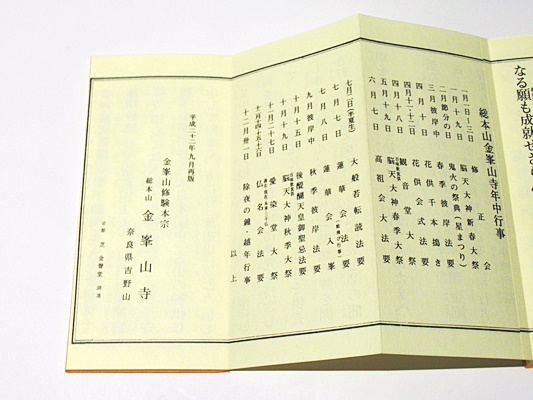 なる願も成就せざ
総本山金峯山寺年中行事
一月一日～三日　修正会
一月十九日　脳天大神新春大祭
二月節分の日　鬼火の祭典（星まつり）
三月彼岸中　春季彼岸法要
四月十日　花供千本搗き
四月十一・十二日　花供会式法要
四月十八日　観音堂大祭
五月十九日　脳天大神春季大祭
六月七日　高祖会大法要
七月二日（半夏生）　大般若転読法要
七月七日　蓮華会法要
七月八日　蓮華会入峯
九月彼岸中　秋季彼岸法要
十月十五日　後醍醐天皇御聖忌法要
十月十九日　脳天大神秋季大祭
十一月二十七日　愛染堂大祭
仏名会法要
十二月卅一日　除夜の鐘・越年行事
以上
平成二十二年九月再版
金峯山修験本宗
総本山　金峯山寺
奈良県吉野山
京都　芝金聲堂